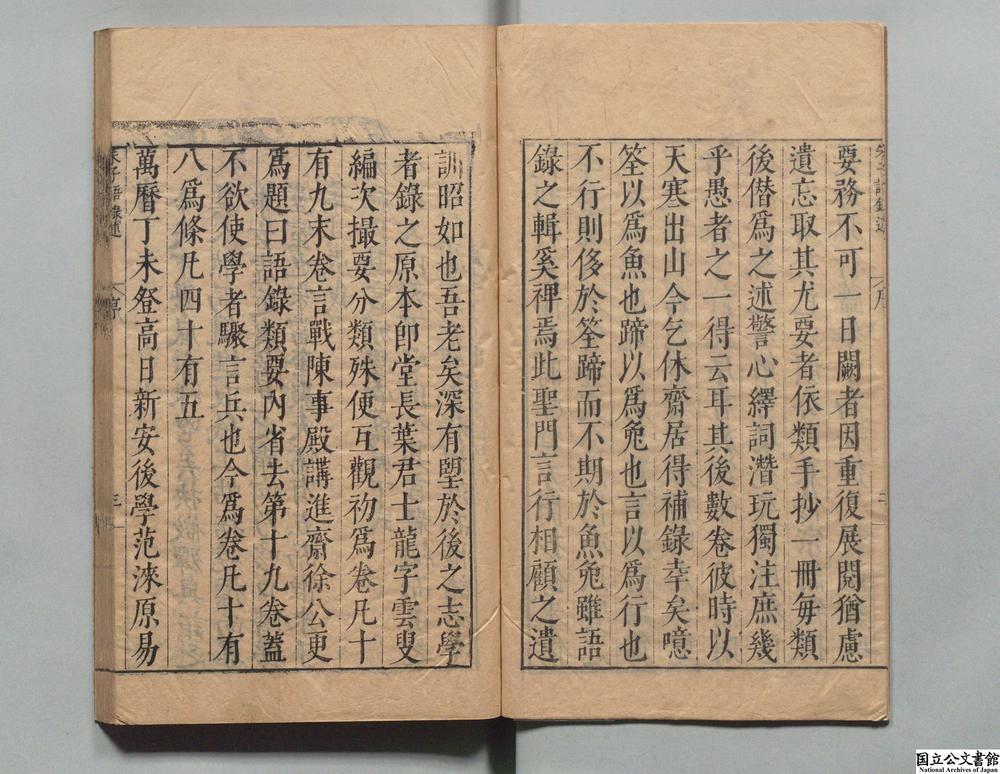 要務不可一日闕者因重復展閱猶慮
遺忘取其尤要者依類手抄一冊每類
後僣爲之述警心繹詞潛玩獨注庶幾
乎愚者之一得云耳其後數卷彼時以
天寒出山今乞休齋居得補錄幸矣噫
筌以爲魚也蹄以爲兔也言以爲行也
不行則侈於筌蹄而不期於魚兔雖語
錄之輯奚裨焉此聖門言行相顧之遺
訓昭如也吾老矣深有朢於後之志學
者錄之原本卽堂長葉君士龍字雲叟
編次撮要分類殊便互觀初爲卷凡十
有九末卷言戰陳事殿講進齋徐公更
爲題曰語錄類要內省去第十九卷蓋
不欲使學者驟言兵也今爲卷凡十有
八爲條凡四十有五
萬曆丁未登高日新安後學范淶原易
朱子語錄述
序
三
国立公文書館
National Archives of Japan